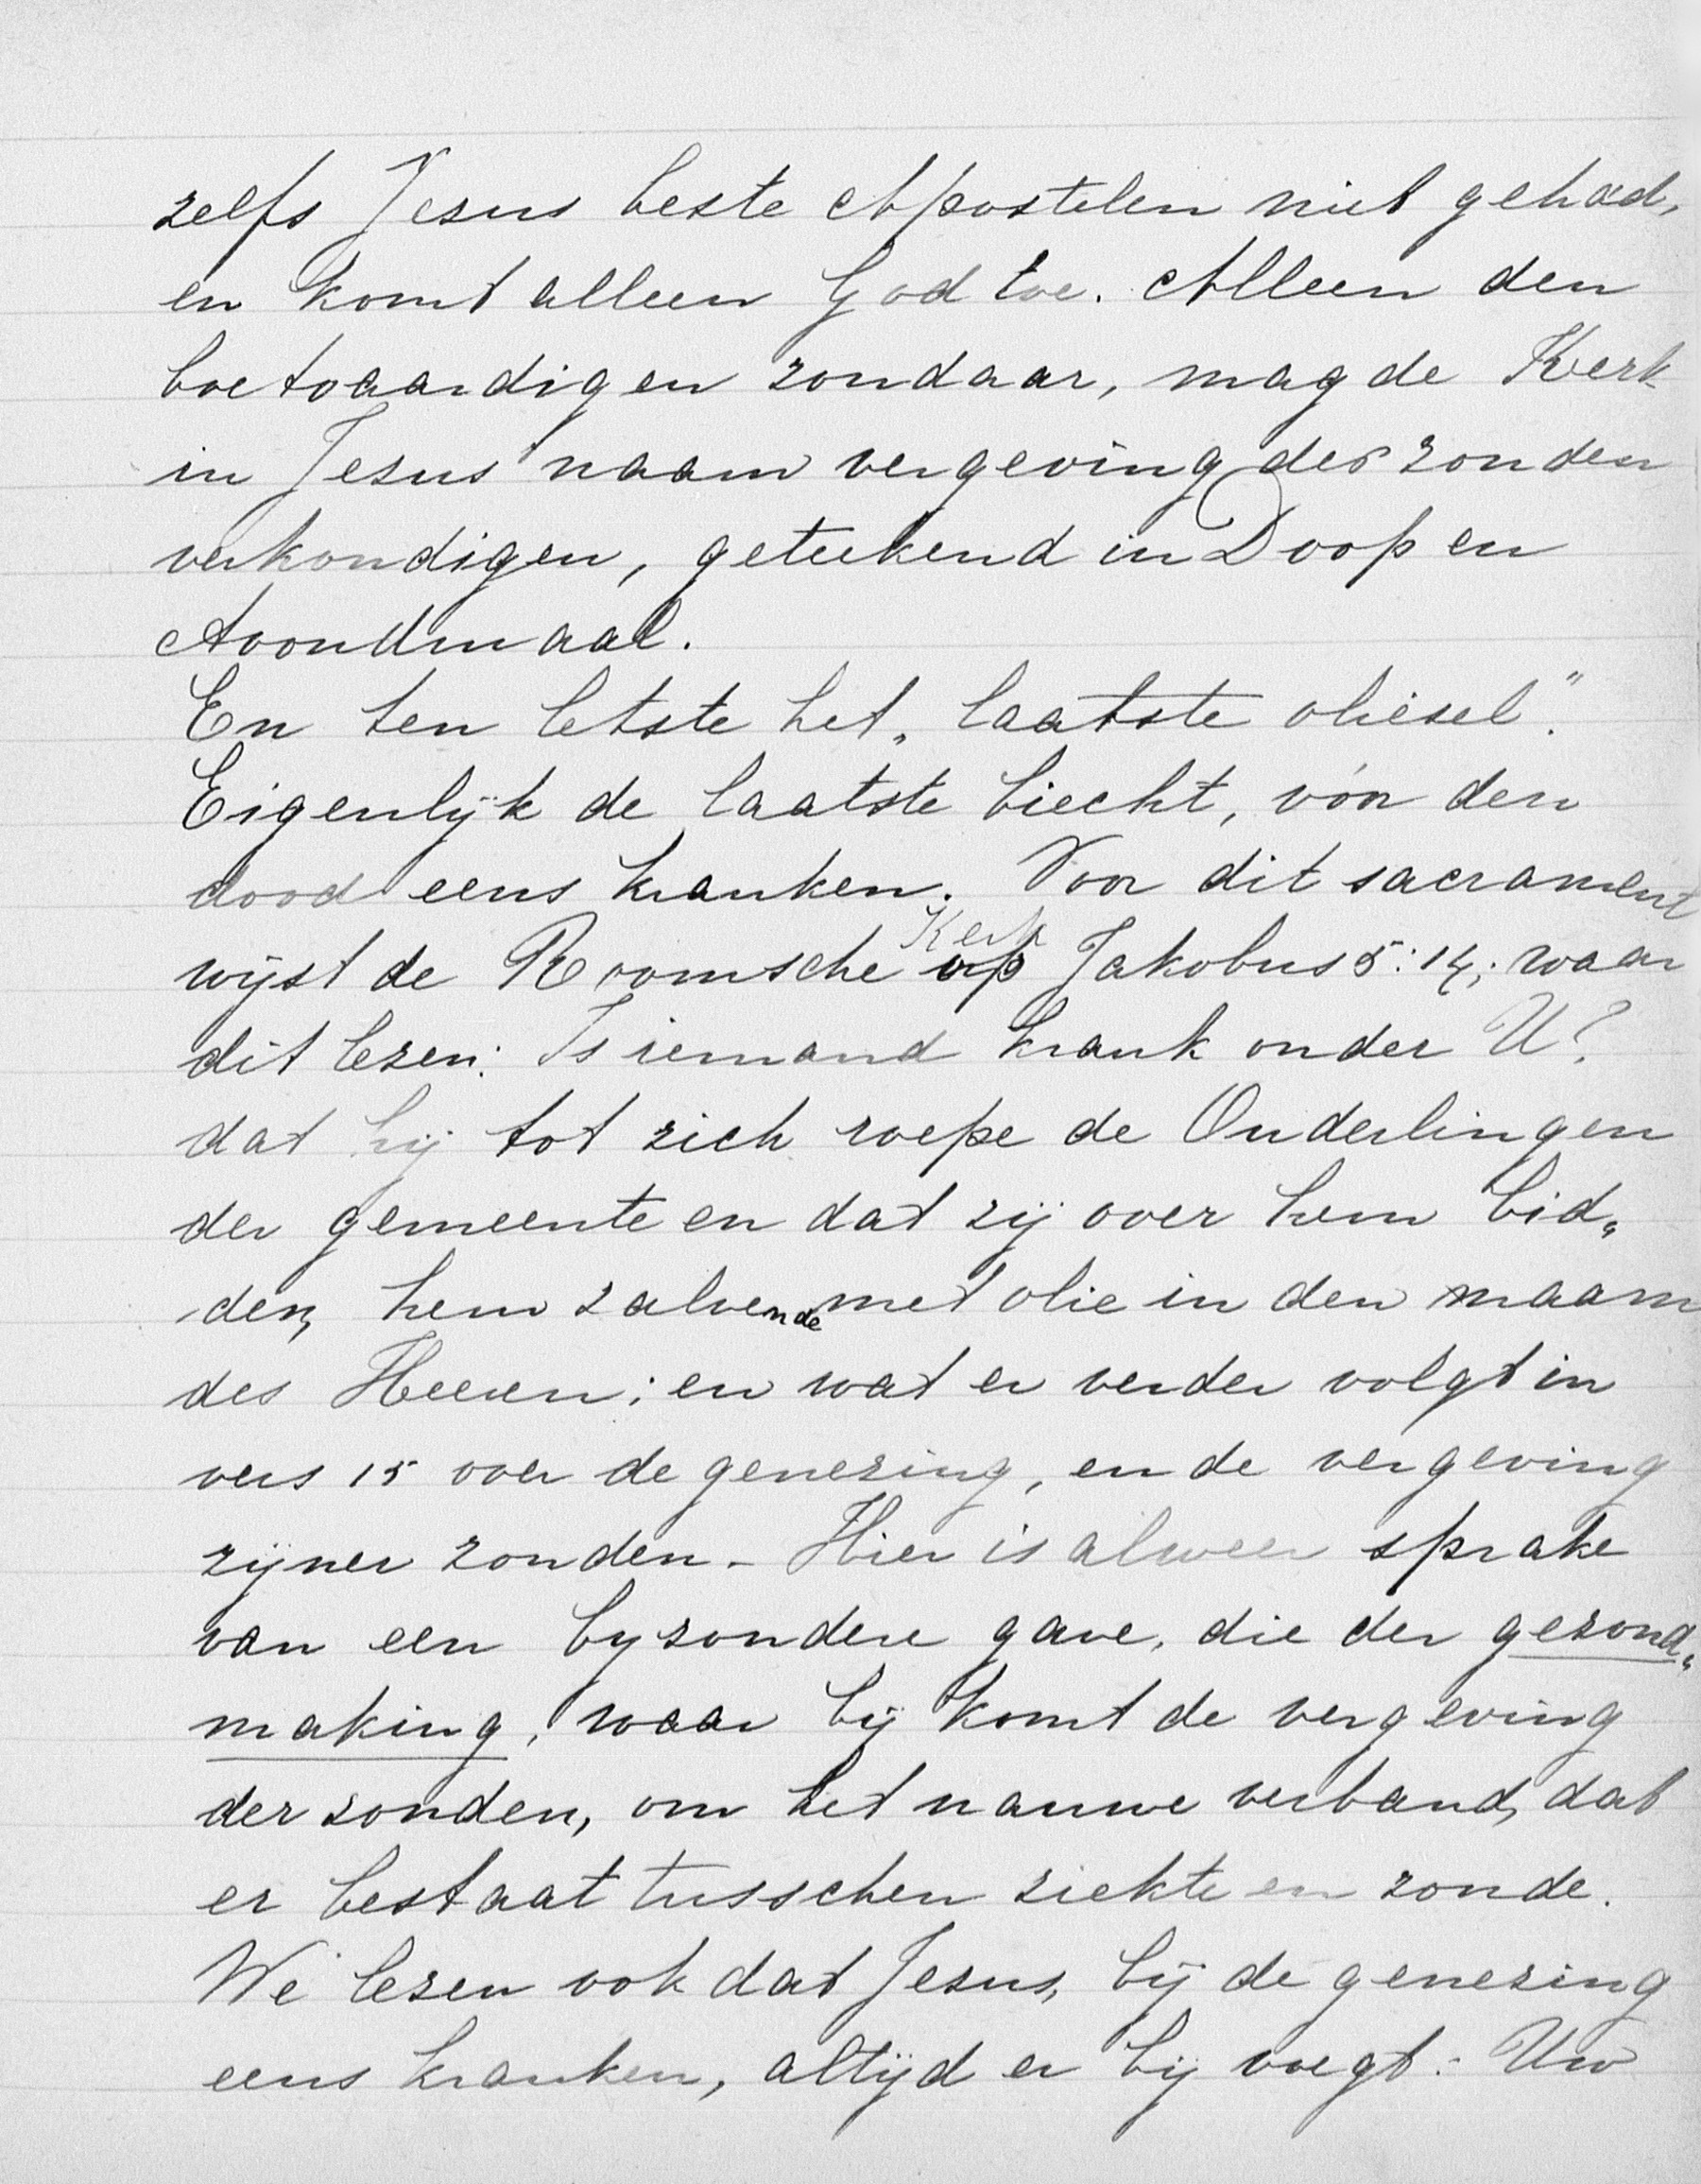 zelfs Jesus beste Apostelen niet gehad,
en komt alleen God toe. Alleen den
boetvaardigen zondaar, mag de Kerk
in Jesus' naam vergeving der zonden
verkondigen, geteekend in Doop en
Avondmaal.
En ten letste het „laatste oliesel".
Eigenlijk de laatste biecht, vóór den
dood eens kranken. Voor dit sacrament
wijst de Roomsche Kerk op Jakobus 5:14; waar
dit lezen: Is iemand krank onder U?
dat hij tot zich roepe de Ouderlingen
der gemeente en dat zij over hem bid„
den, hem zalvende met olie in den naam
des Heeren; en wat er verder volgt in
vers 15 over de genezing, en de vergeving
zijner zonden. Hier is alweer sprake
van een byzondere gave, die der gezond„
making, waar bij komt de vergeving
der zonden, om het nauwe verband, dat
er bestaat tusschen ziekte en zonde.
We lezen ook dat Jesus, bij de genezing
eens kranken, altijd er bij voegt: Uw